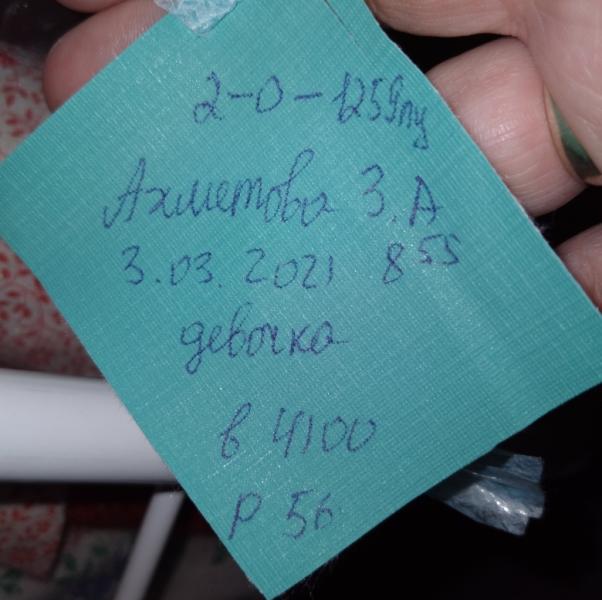 2-0-1259пу
Ахметова З.А
3.03.2021 8 55
девочка
в 4100
р 56